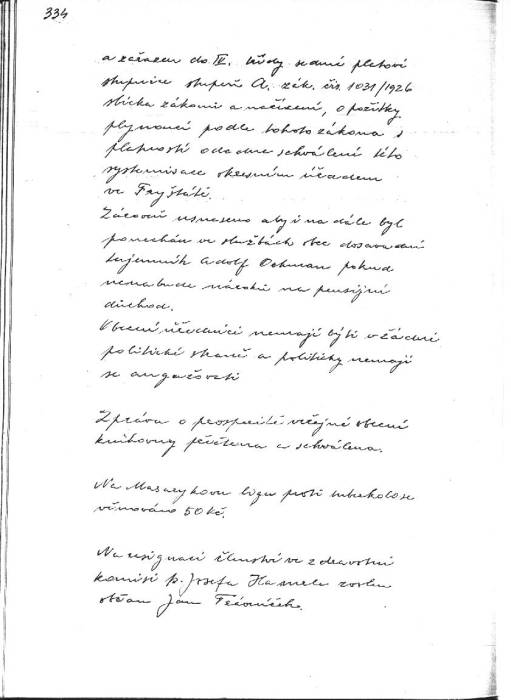 334
a zařazen do IV. třídy sedmé platové
stupnice stupeň A. zák. čís. 1031/1926
sbírka zákonů a nařízení, o požitky
plynoucí podle tohoto zákona s
platností ode dne schválení této
systemisace okresním úřadem
ve Fryštátě.
Zároveň usneseno aby i na dále byl
ponechán ve službách obce dosavadní
tajemník Adolf Ochman pokud
nenabude nároku na pensijní
důchod.
Obecní úředníci nemají býti v žádné
politické straně a politicky nemají
se angažovati
Zpráva o prosperitě veřejné obecní
knihovny přečtena a schválena.
Na Masarykovu ligu proti tuberkolose
věnováno 50 Kč.
Na resignaci členství ve zdravotní
komisi p. Josefa Hamele zvolen
občan Jan